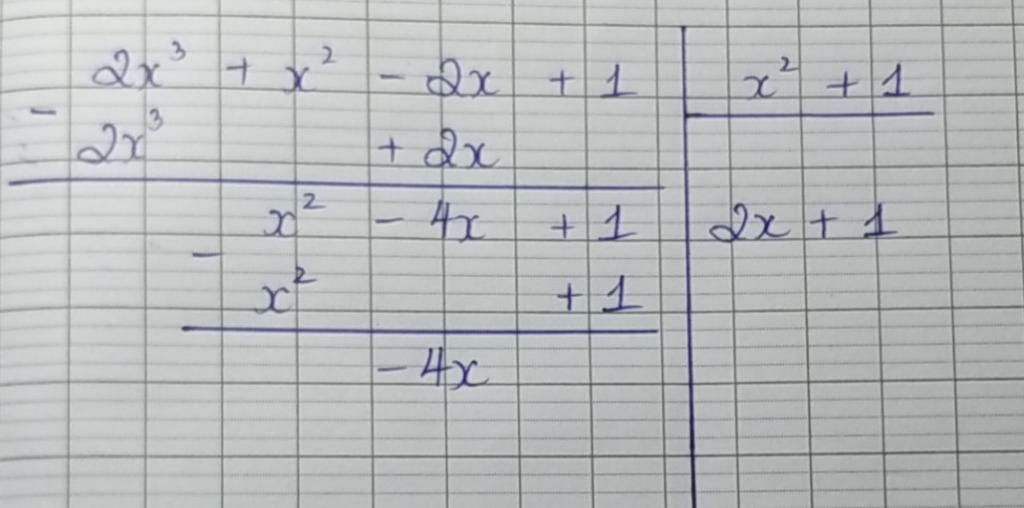 2x³ + x² - 2x + 1 | x² + 1
-
2x³ + 2x
x² - 4x + 1 | 2x + 1
-
x² + 1
- 4x